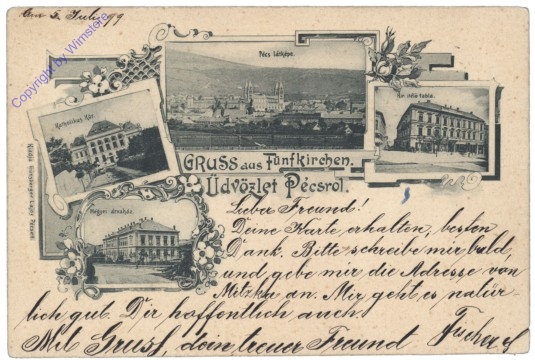 Am 5. July 99
Copyright by Wimstore
Pécs látképe.
Katholikus Kör.
Kir. itélő tábla.
GRUSS aus Fünfkirchen.
Üdvözlet Pécsről.
Lieber Freund!
Deine Karte erhalten, besten
Dank. Bitte schreibe mir bald,
und gebe mir die Adresse von
Mitzka an. Mir geht es natür-
lich gut. Dir hoffentlich auch.
Mit Gruss, dein treuer Freund